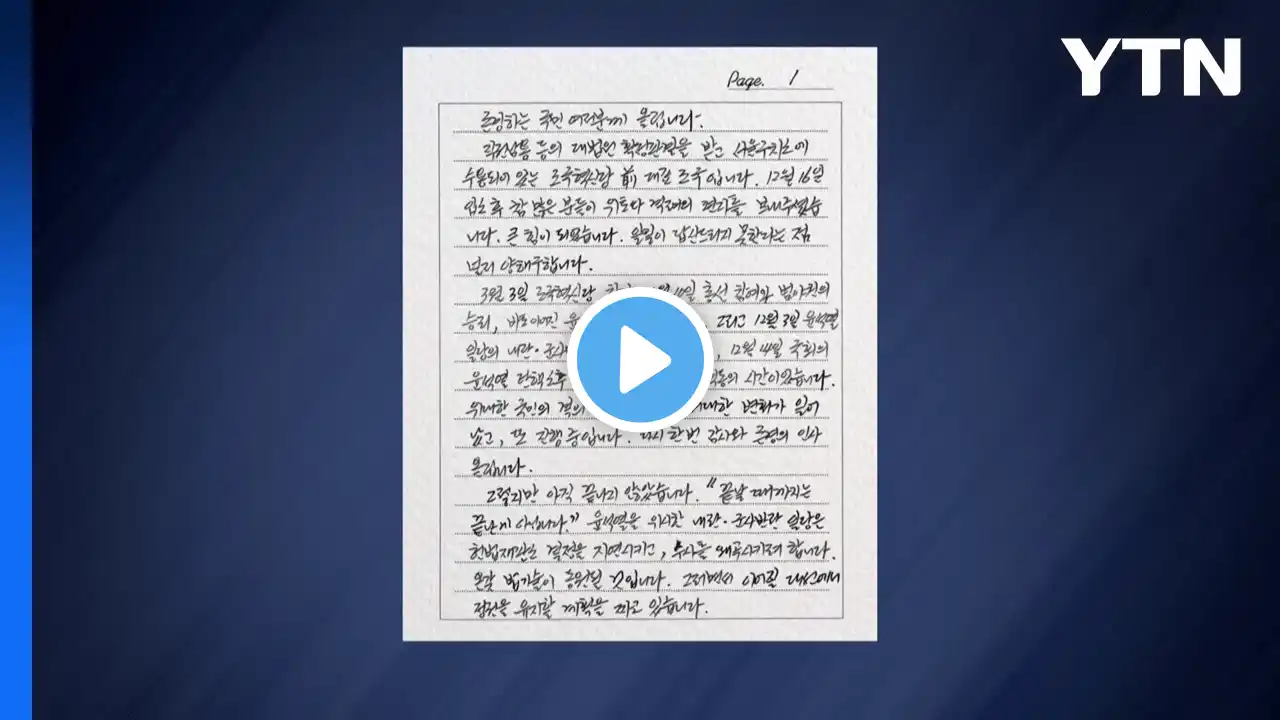 YTN
Page. 1
존경하는 국민 여러분께 올립니다.
직권남용 등의 대법원 확정판결을 받고 서울구치소에
수용되어 있는 조국혁신당 前 대표 조국입니다. 12월 16일
입소 후 참 많은 분들이 위로와 격려의 편지를 보내주셨습
니다. 큰 힘이 되었습니다. 일일이 답신드리지 못한다는 점
널리 양해구합니다.
3월 3일 조국혁신당 총선 참여와 범야권의
승리, 그리고 12월 3일 윤석열
일당의 내란· 12월 4일 국회의
윤석열 탄핵소추 시간이었습니다.
위대한 국민의 변화가 일어
났고, 또 진행 중입니다. 다시 한번 감사와 존경의 인사
올립니다.
그렇지만 아직 끝나지 않았습니다. "끝날 때까지는
끝난 게 아닙니다." 윤석열을 위시한 내란·군사반란 일당은
헌법재판소 결정을 지연시키고, 수사를 왜곡시키려 합니다.
온갖 법기술이 동원될 것입니다. 그러면서 이어질 대선에서
정권을 유지할 계획을 짜고 있습니다.